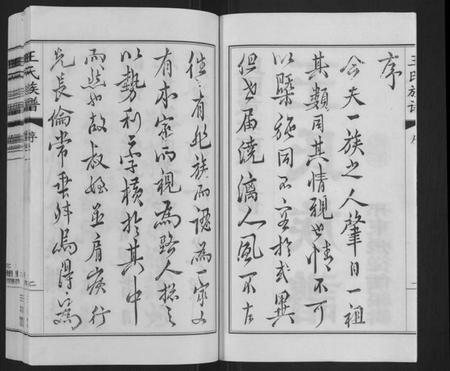 序
今夫一族之人肇自一祖
其類同其情親世情不可
以槩施同不容於或異
但世屆澆漓人風不古
往往有非族而認為一家又
有本家而視為路人捴之
以勢利字橫於其中
而然也故叔姪並肩矣行
兄長倫常乖舛焉得
王氏族譜
序
王氏族譜
序